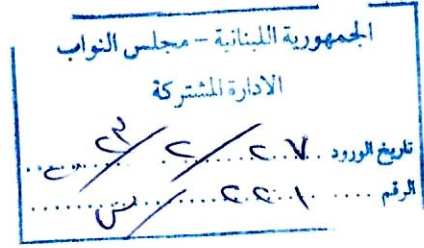 الجمهورية اللبنانية – مجلس النواب
الادارة المشتركة
تاريخ الورود ٢٧/٢/٢٣
الرقم ٢٢١/س